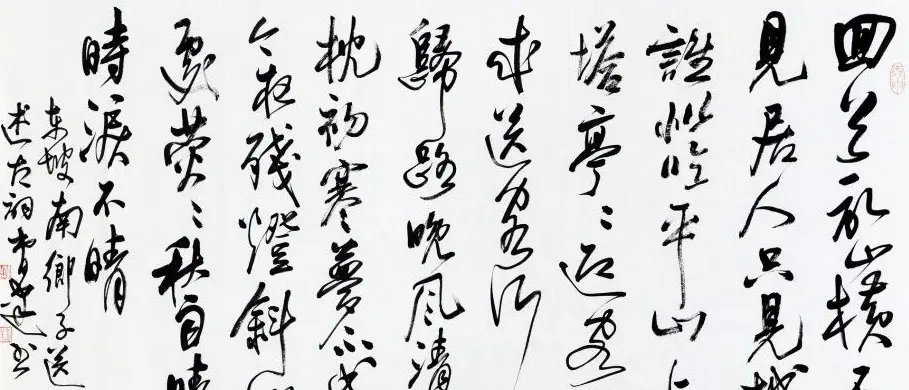 回首乱山横不
見居人只見城
誰似临平山上
塔亭〻迎客
来送客行
歸路晚风清
枕初寒夢不成
今夜残燈斜
處荧〻秋雨晴
時淚不晴
东坡南鄉子送
述古詞 书